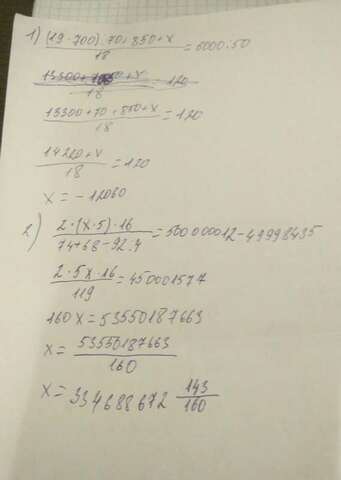 1) (19·700)+70+850+x / 18 = 6000:50
13300+70+850+x / 18 = 120
14220+x / 18 = 120
x = -12060
2) 2·(x·5)·16 / 74+68-92:4 = 500000012-49998435
2·5x·16 / 119 = 450001577
160x = 53550187663
x = 53550187663 / 160
x = 334688672 143/160